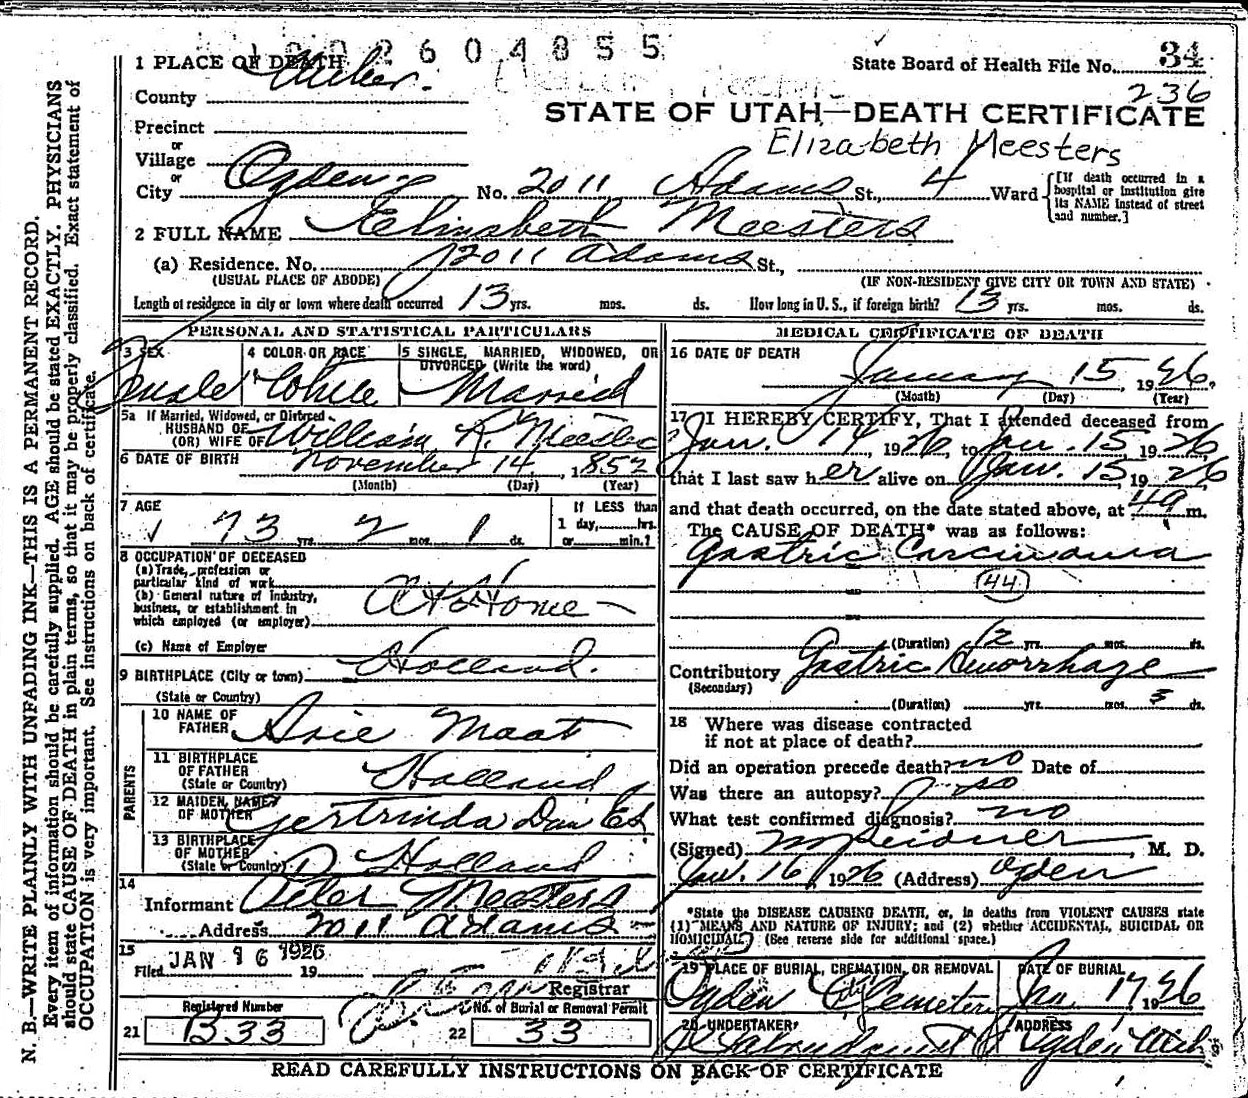 2604855
1 PLACE OF DEATH
State Board of Health File No. 34
County Weber.
236
STATE OF UTAH—DEATH CERTIFICATE
Precinct
or
Elizabeth Meesters
Village
or
City Ogden No. 2011 Adams St., 4 Ward
[If death occurred in a hospital or institution give its NAME instead of street and number.]
2 FULL NAME Elizabeth Meesters
(a) Residence. No. 2011 Adams St.,
(USUAL PLACE OF ABODE) (IF NON-RESIDENT GIVE CITY OR TOWN AND STATE)
Length of residence in city or town where death occurred 13 yrs. mos. ds. How long in U. S., if foreign birth? 13 yrs. mos. ds.
PERSONAL AND STATISTICAL PARTICULARS
3 SEX 4 COLOR OR RACE 5 SINGLE, MARRIED, WIDOWED, OR
DIVORCED (Write the word)
Female White Married
5a If Married, Widowed, or Divorced
HUSBAND OF
(OR) WIFE OF William R. Meesters
6 DATE OF BIRTH November 14, 1852
(Month) (Day) (Year)
7 AGE If LESS than
73 yrs. 2 mos. 1 ds. 1 day, hrs.
or min.?
8 OCCUPATION OF DECEASED
(a) Trade, profession or
particular kind of work
(b) General nature of industry,
business, or establishment in
which employed (or employer) At Home
(c) Name of Employer
9 BIRTHPLACE (City or town) Holland.
(State or Country)
PARENTS
10 NAME OF
FATHER Arie Maat
11 BIRTHPLACE
OF FATHER Holland
(State or Country)
12 MAIDEN NAME
OF MOTHER Gertrinda
13 BIRTHPLACE
OF MOTHER Holland
(State or Country)
14
Informant Meesters
Address 2011 Adams
15
Filed JAN 16 1926 19
Registrar
Registered Number No. of Burial or Removal Permit
21 B33 22 33
MEDICAL CERTIFICATE OF DEATH
16 DATE OF DEATH
January 15, 1926.
(Month) (Day) (Year)
17 I HEREBY CERTIFY, That I attended deceased from
Jan. 14 1926, to Jan. 15, 1926
that I last saw her alive on Jan. 15, 1926
and that death occurred, on the date stated above, at m.
The CAUSE OF DEATH* was as follows:
Gastric Carcinoma
44
(Duration) yrs. mos. ds.
Contributory Gastric Hemorrhage
(Secondary)
(Duration) yrs. mos. 3 ds.
18 Where was disease contracted
if not at place of death?
Did an operation precede death? no Date of
Was there an autopsy? no
What test confirmed diagnosis? no
(Signed) , M. D.
Jan. 16, 1926 (Address) Ogden
*State the DISEASE CAUSING DEATH, or, in deaths from VIOLENT CAUSES state
(1) MEANS AND NATURE OF INJURY; and (2) whether ACCIDENTAL, SUICIDAL OR
HOMICIDAL. (See reverse side for additional space.)
19 PLACE OF BURIAL, CREMATION, OR REMOVAL DATE OF BURIAL
Ogden City Cemetery Jan. 17 1926
20 UNDERTAKER ADDRESS
Ogden Utah
READ CAREFULLY INSTRUCTIONS ON BACK OF CERTIFICATE
N. B.—WRITE PLAINLY WITH UNFADING INK—THIS IS A PERMANENT RECORD.
Every item of information should be carefully supplied. AGE should be stated EXACTLY. PHYSICIANS
should state CAUSE OF DEATH in plain terms, so that it may be properly classified. Exact statement of
OCCUPATION is very important. See instructions on back of certificate.